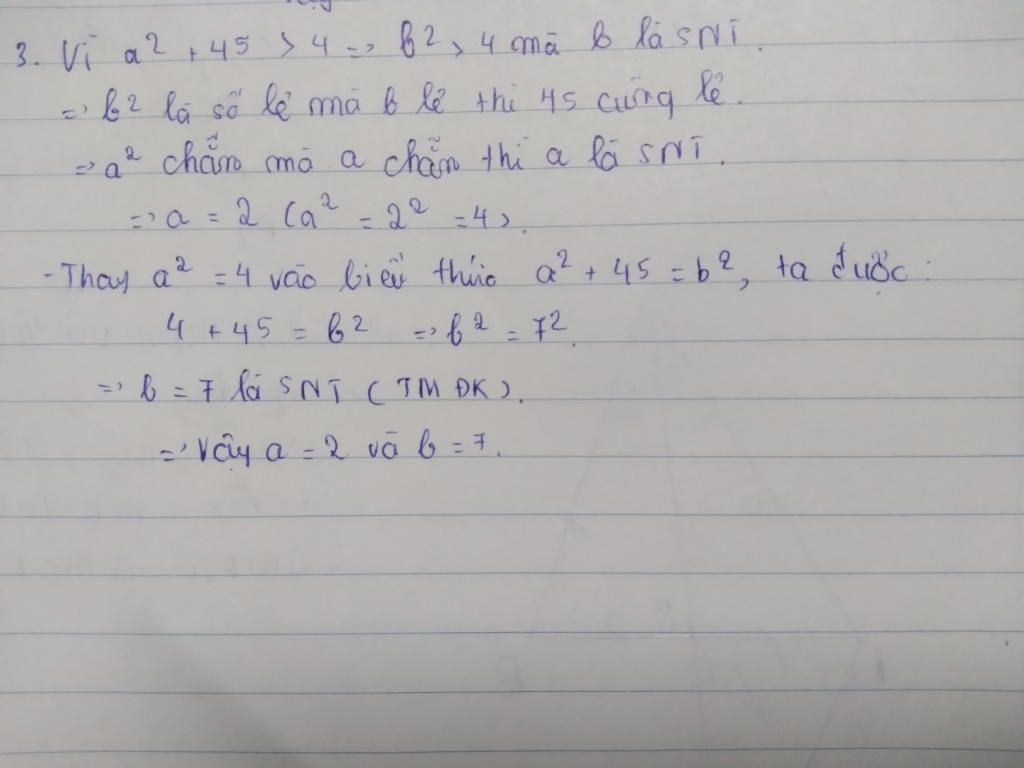 3. Vì a² + 45 > 4 => b² > 4 mà b là SNT.
=> b² là số lẻ mà b lẻ thì 45 cũng lẻ.
=> a² chẵn mà a chẵn thì a là SNT.
=> a = 2 (a² = 2² = 4).
- Thay a² = 4 vào biểu thức a² + 45 = b², ta được:
4 + 45 = b² => b² = 7².
=> b = 7 là SNT (TMĐK).
=> Vậy a = 2 và b = 7.